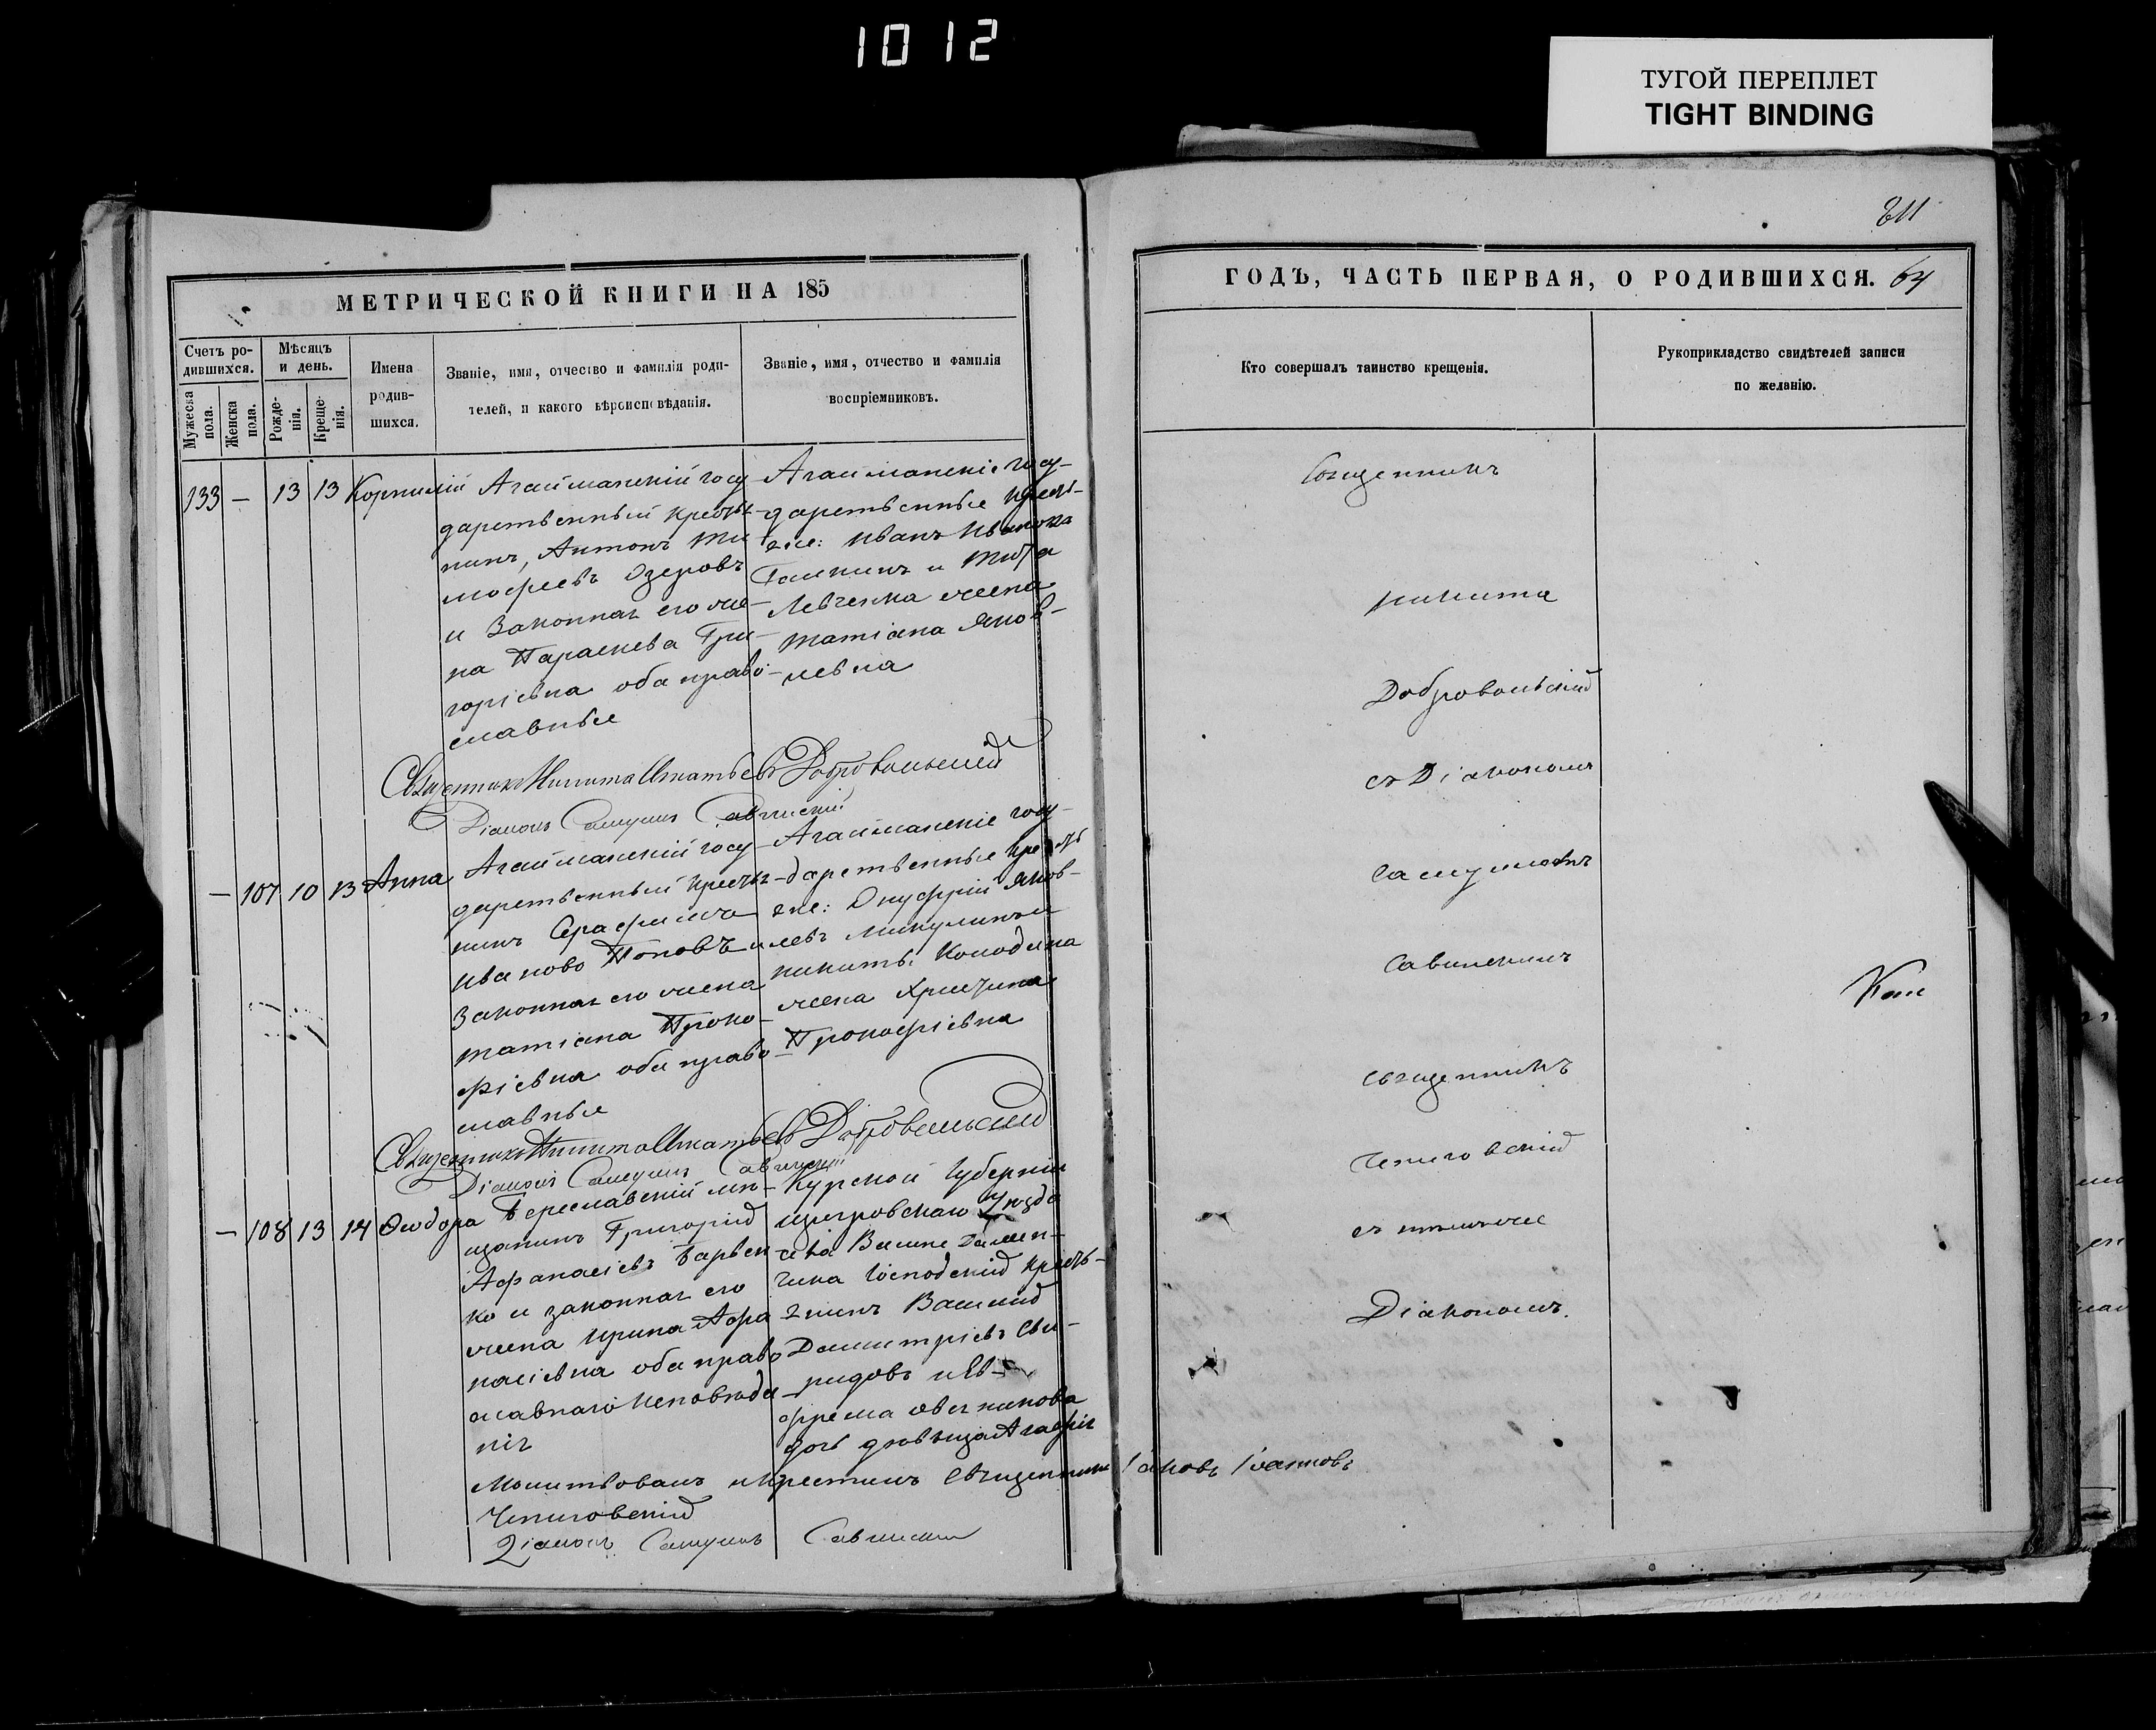 1012
ТУГОЙ ПЕРЕПЛЕТ
TIGHT BINDING
МЕТРИЧЕСКОЙ КНИГИ НА 185
Счетъ ро-
дившихся.
Мужеска
пола.
Женска
пола.
Мѣсяцъ
и день.
Рожде-
нія.
Креще-
нія.
Имена
родив-
шихся.
Званіе, имя, отчество и фамилія роди-
телей, и какого вѣроисповѣданія.
Званіе, имя, отчество и фамилія
воспріемниковъ.
133 — 13 13 Корнилій
Агайманскій госу
дарственный крестья
нинъ, Антонъ Ти
мофеевъ Озеровъ
и законная его же-
на Параскева Гри-
горіевна оба право-
славные
Агайманскіе госу-
дарственные кресть-
яне: Иванъ Иванова
Галкинъ и Тита
Левченка жена
Татіана Яков-
левна
Священникъ Никита Игнатьевъ Добровольскій
Діаконъ Самуилъ Савинскій
— 107 10 13 Анна
Агайманскій госу-
дарственный крестья-
нинъ Серафимъ
Иваново Поповъ и
законная его жена
Татіана Проко-
фіевна оба право-
славные
Агайманскіе госу-
дарственные кресть
яне: Онуфрій Яков-
левъ Микулинъ и
Никиты Колодина
жена Христина
Прокофіевна
Священникъ Никита Игнатьевъ Добровольскій
Діаконъ Самуилъ Савинскій
— 108 13 14 Ѳеодора
Береславскій мѣ-
щанинъ Григорій
Афанасіевъ Барвен
ко и законная его
жена Ирина Афа
насіевна оба право
славнаго исповѣда-
нія
Курской Губерніи
Щигровскаго Уѣзда
Господскій кресть-
янинъ Василій
Димитріевъ Сви-
ридовъ и Ев-
фрема Овчинникова
дочь дѣвица Агафія
Молитвовалъ и крестилъ Священникъ Іаковъ Іоанновъ
Чепиговскій
Діаконъ Самуилъ Савинскій
211
ГОДЪ, ЧАСТЬ ПЕРВАЯ, О РОДИВШИХСЯ. 64
Кто совершалъ таинство крещенія.
Рукоприкладство свидѣтелей записи
по желанію.
Священникъ
Никита
Добровольскій
съ Діакономъ
Самуиломъ
Савинскимъ
Священникъ
Чепиговскій
съ тѣмъ же
Діакономъ.